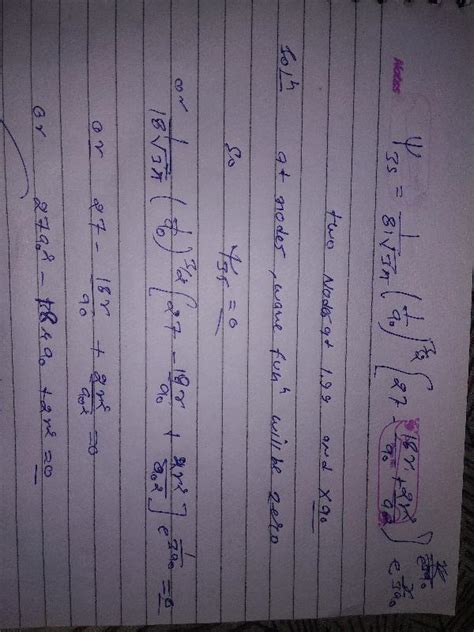 Nodes
ψ3s = 1/81√3π (1/a0)^3/2 [27 - 18r/a0 + 2r²/a0²] e^r/3a0
two Nodes at 1.9a0 and xa0
Solⁿ at nodes, wave funⁿ will be zero
So ψ3s = 0
or 1/18√3π (1/a0)^3/2 [27 - 18r/a0 + 2r²/a0²] e^r/3a0 = 0
or 27 - 18r/a0 + 2r²/a0² = 0
or 27a0² - 18ra0 + 2r² = 0